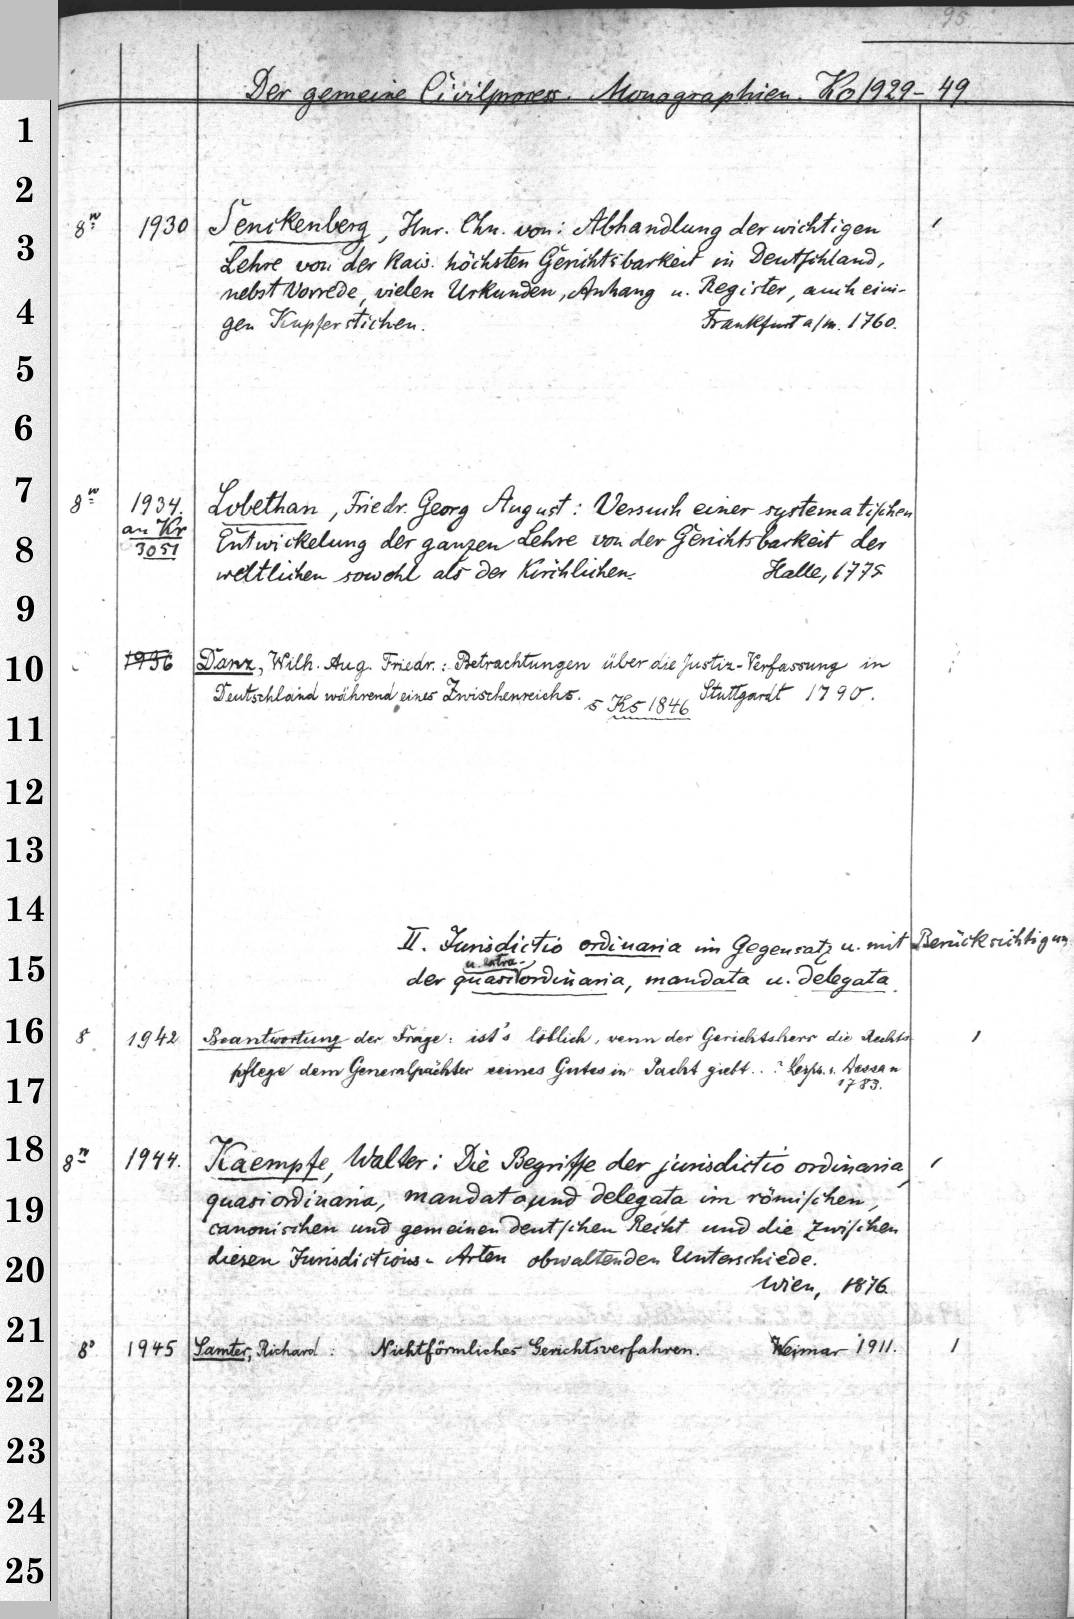 95
Der gemeine Civilprocess. Monographien. Ko 1929-49
1
2
8º 1930 Senckenberg, Hnr. Chn. von: Abhandlung der wichtigen 1
3
Lehre von der Kais. höchsten Gerichtsbarkeit in Deutschland,
nebst Vorrede, vielen Urkunden, Anhang u. Register, auch eini-
4
gen Kupferstichen. Frankfurt a/m. 1760.
5
6
7
8º 1934. Lobethan, Friedr. Georg August: Versuch einer systematischen
an Kr
8
3051 Entwickelung der ganzen Lehre von der Gerichtsbarkeit der
weltlichen sowohl als der Kirchlichen. Halle, 1775
9
10
1936 Danz, Wilh. Aug. Friedr.: Betrachtungen über die Justiz-Verfassung in
Deutschland während eines Zwischenreichs. s Ks 1846 Stuttgardt 1790.
11
12
13
14
II. Jurisdictio ordinaria im Gegensatz u. mit Berücksichtigun
15
u. extra-
der quasi ordinaria, mandata u. delegata.
16
8 1942 Beantwortung der Frage: ist's löblich, wenn der Gerichtsherr die Rechts 1
17
pflege dem Generalpächter seines Gutes in Pacht giebt..? Leipz. u. Dessau
1783.
18
8º 1944. Kaempfe, Walter: Die Begriffe der jurisdictio ordinaria, 1
19
quasi ordinaria, mandata und delegata im römischen,
canonischen und gemeinen deutschen Recht und die zwischen
20
diesen Jurisdictions-Arten obwaltenden Unterschiede.
Wien, 1876
21
8º 1945 Samter, Richard: Nichtförmliches Gerichtsverfahren. Weimar 1911. 1
22
23
24
25